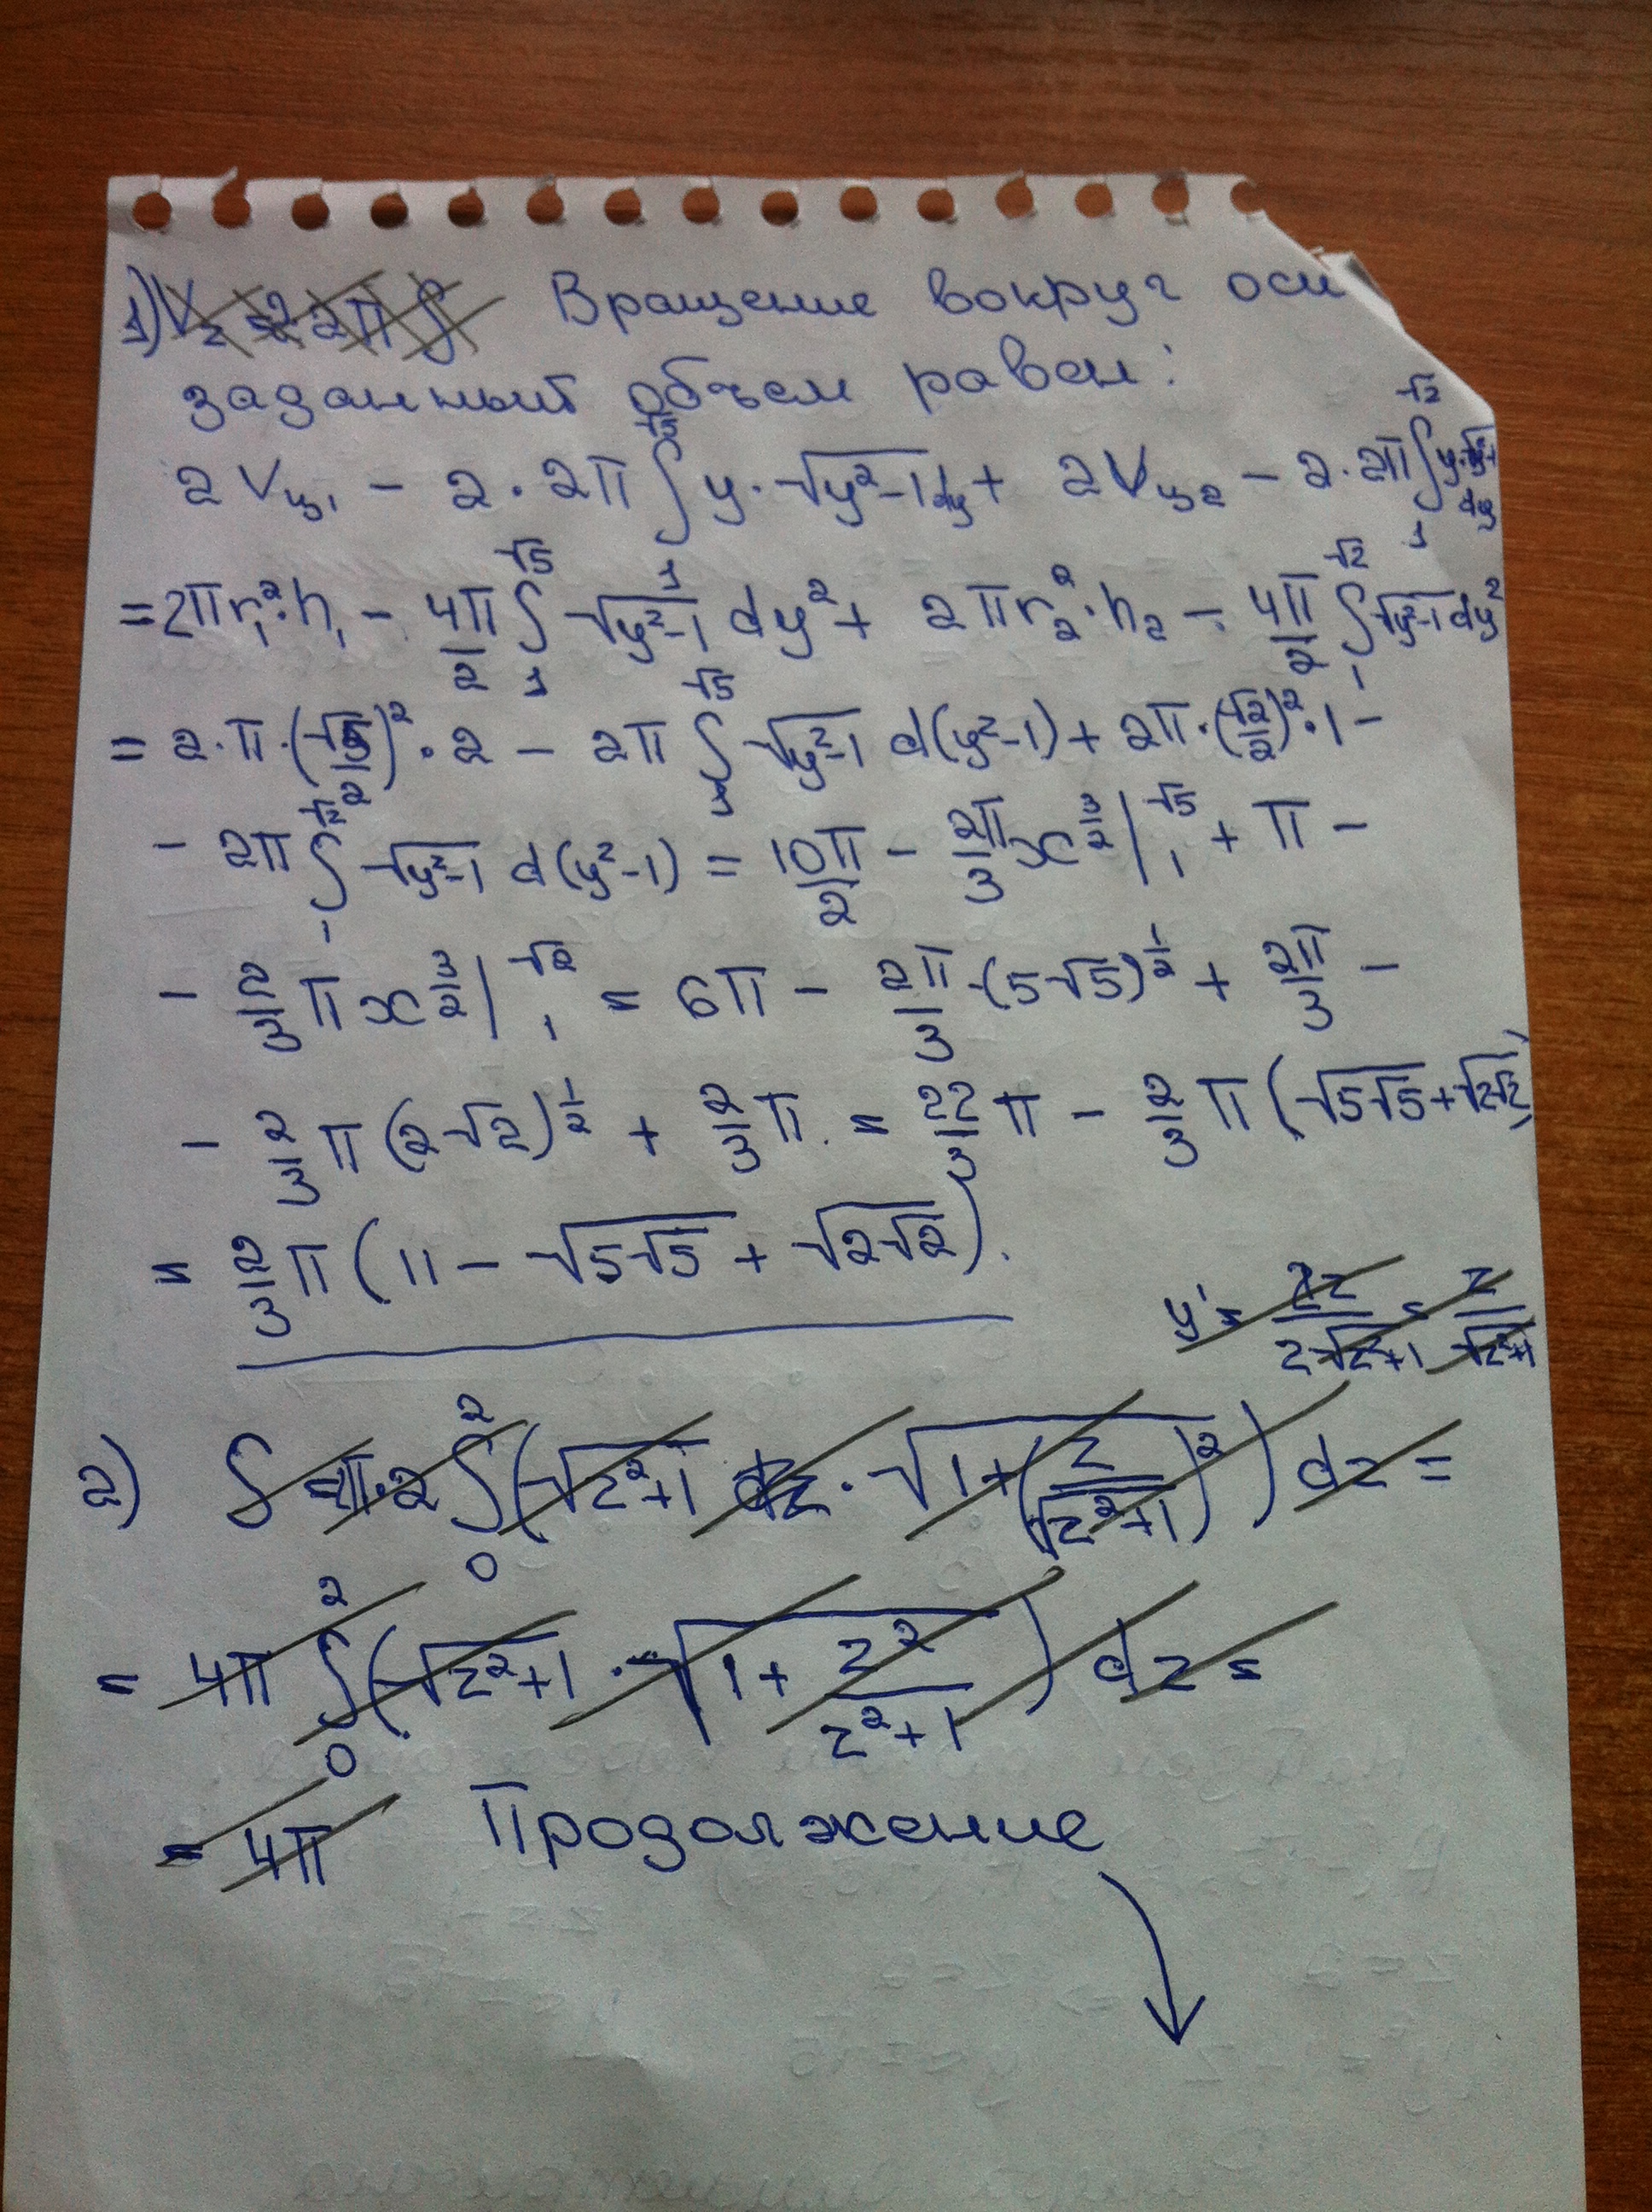 1) V_z = 2·2π∫ Вращение вокруг оси
заданный объем равен:
2V_{y_1} - 2·2π ∫_1^{√5} y·√(y²-1) dy + 2V_{y_2} - 2·2π ∫_1^{√2} dy
= 2πr_1²·h_1 - 4π/2 ∫_1^{√5} √(y²-1) dy² + 2πr_2²·h_2 - 4π/2 ∫_1^{√2} √(y²-1) dy²
= 2·π·(√5/2)²·2 - 2π ∫_1^{√5} √(y²-1) d(y²-1) + 2π·(√2/2)²·1 -
- 2π ∫_1^{√2} √(y²-1) d(y²-1) = 10π/2 - 2π/3 x^{3/2} |_1^{√5} + π -
- 2/3 π x^{3/2} |_1^{√2} = 6π - 2π/3 ·(5√5)^{1/2} + 2π/3 -
- 2/3 π (2√2)^{1/2} + 2/3 π = 22/3 π - 2/3 π (√(5√5) + √(2√2))
= 2/3 π (11 - √(5√5) + √(2√2)).
y' = 2z/(2√(z²+1)) = z/√(z²+1)
2) S = π·2 ∫_0^2 (√(z²+1) dz · √(1+(z/√(z²+1))²)) dz =
= 4π ∫_0^2 (√(z²+1) · √(1 + z²/(z²+1))) dz =
= 4π Продолжение